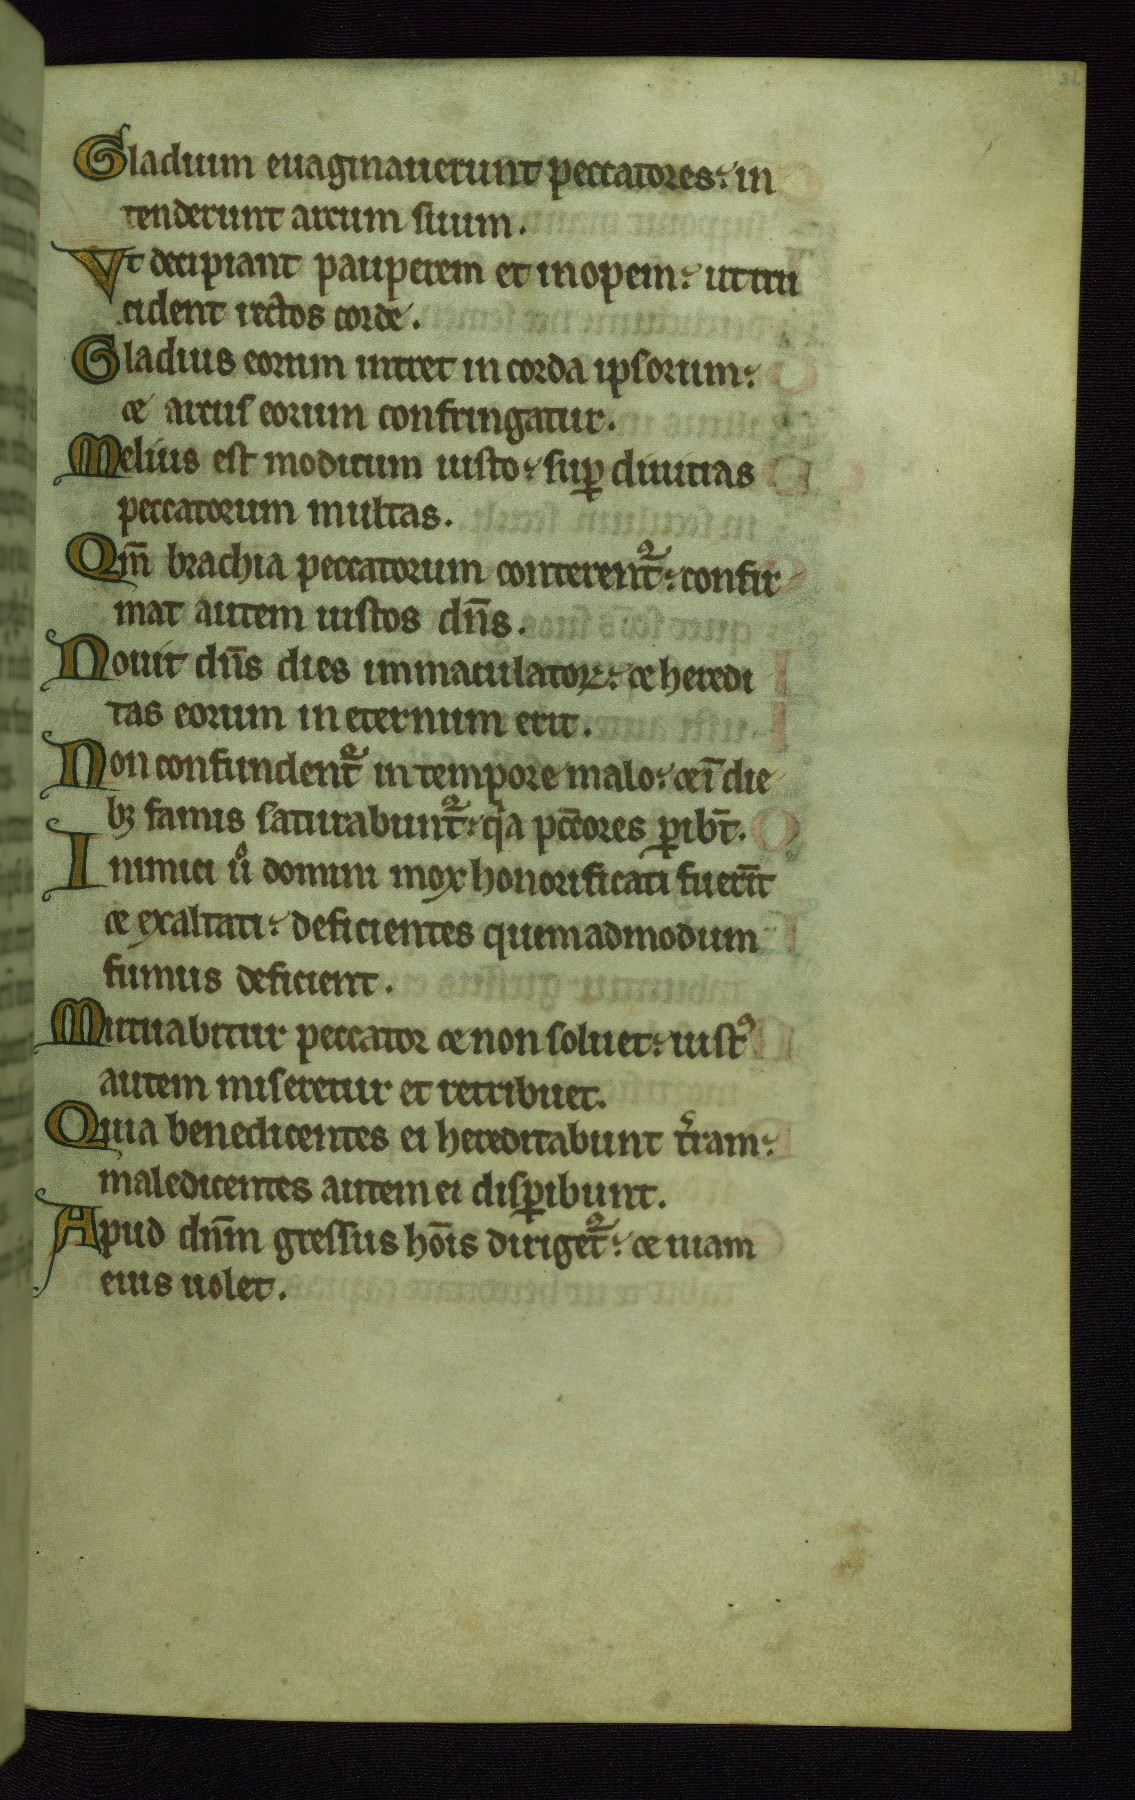 Gladium euaginauerunt peccatores: in
tenderunt arcum suum.
Vt decipiant pauperem et inopem: ut tru
cident rectos corde.
Gladius eorum intret in corda ipsorum:
& arcus eorum confringatur.
Melius est modicum iusto: suꝑ diuitias
peccatorum multas.
Qm̄ brachia peccatorum conterent᷑: confir
mat autem iustos dn̄s.
Nouit dn̄s dies immaculatoꝝ: & heredi
tas eorum in eternum erit.
Non confundent᷑ in tempore malo: & ī die
bꝫ famis saturabunt᷑: qͣa pcc̄ores ꝑibt̄.
Inimici uͦ domini mox honorificati fuerīt
& exaltati: deficientes quemadmodum
fumus deficient.
Mutuabitur peccator & non soluet: iustꝰ
autem miseretur et retribuet.
Quia benedicentes ei hereditabunt t̉ram:
maledicentes autem ei disꝑibunt.
Apud dn̄m gressus hōis diriget᷑: & uiam
eius uolet.